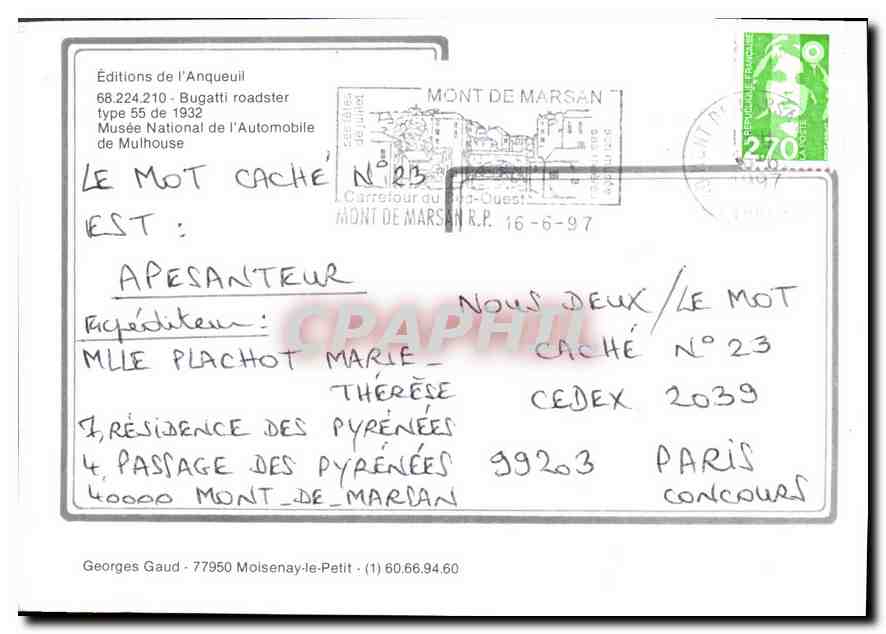 Éditions de l'Anqueuil
68.224.210 - Bugatti roadster
type 55 de 1932
Musée National de l'Automobile
de Mulhouse
MONT DE MARSAN
Carrefour du Sud-Ouest
MONT DE MARSAN R.P. 16-6-97
RÉPUBLIQUE FRANÇAISE
2,70
LA POSTE
1997
LE MOT CACHÉ N°23
EST :
APESANTEUR
Expéditeur :
MLLE PLACHOT MARIE-
THÉRÈSE
7, RÉSIDENCE DES PYRÉNÉES
4, PASSAGE DES PYRÉNÉES
40000 MONT-DE-MARSAN
NOUS DEUX / LE MOT
CACHÉ N° 23
CEDEX 2039
99203 PARIS
CONCOURS
CPAPHIL
Georges Gaud - 77950 Moisenay-le-Petit - (1) 60.66.94.60